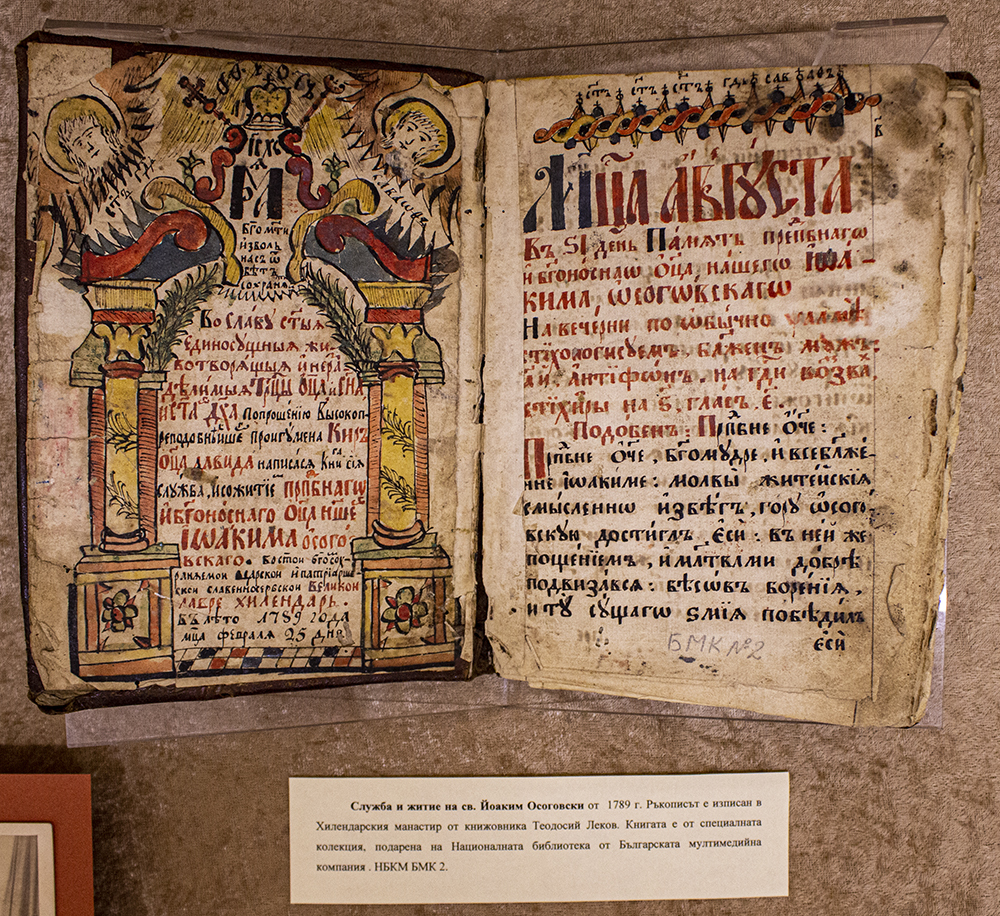 БГОМТИ
ИЗВОЛЬ
НАСЪ Ѡ
БѢТЪ
СОХРАНЯ
Во славу стыѧ
Единосущныѧ жи-
вотворящыѧ и нераз
дѣлимыѧ Трцы Оца и Сна
и ста Дха Попрощенію Высокоп-
реподобнѣйшегѡ проигумена Кирь
Оца Давида написасѧ Книга сіѧ
служба, и сожитіе Прпбнагѡ
и бгоноснаго Оца ншегѡ
Іѡакима Осого
вскаго. Востои бгосох-
раняемои царской и патріарше
ской славенносербской Великои
Лавре Хилендарь.
Въ лѣто 1789 года
мца февраля 25 дня
стъ стъ стъ гдь саваоѳъ
Мца аѵгꙋста
Въ ѕі день Памѧть прпбнагѡ
и бгоноснаѡ Оца нашегѡ Іѡа-
кима Ѡсогѡвскагѡ
На вечерни по ѡбычно
стіхологисуемъ бажень мужъ.
а҃й. антіфѡнъ. на гди возва
стіхиры на ѕ. гласъ е.
Подобенъ: Прпбне Оче:
Прпбне Оче, бгомудре, и всеблаже-
нне Іѡакиме: молвы житейскія
смысленнѡ избѣгъ, гору Ѡсого-
вскую достиглъ еси: въ ней же
пощеніемъ, и млтвами добрѣ
подвизался: бѣсѡвъ боренія,
и тꙋ сꙋщагѡ ѕмія побѣдилъ
еси
БМК №2
Служба и житие на св. Йоаким Осоговски от 1789 г. Ръкописът е изписан в
Хилендарския манастир от книжовника Теодосий Леков. Книгата е от специалната
колекция, подарена на Националната библиотека от Българската мултимедийна
компания . НБКМ БМК 2.